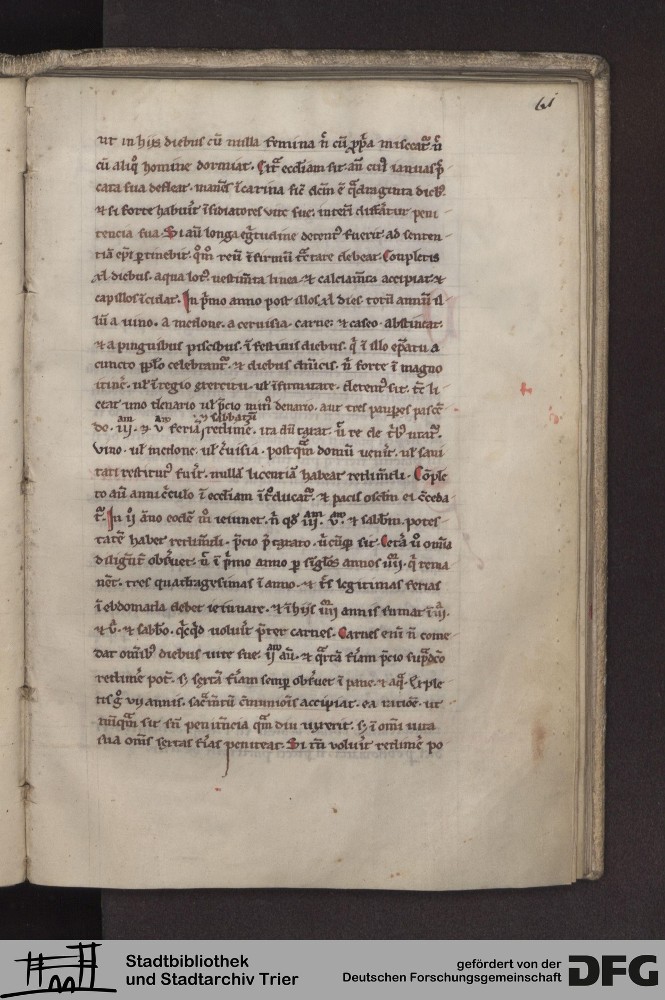 61
ut in hijs diebus cũ nulla femina ñ cũ ꝓp̃a misceat᷑ ñ
cũ aliq̊ homine dormiat. Cit᷑ eccliam sit. añ cuiꝰ ianuas p̃
cata sua defleat. manẽs ĩ carina sic̃ dcm̃ ẽ q̃draginta dieb;
⁊ si forte habuĩt ĩsidiatores vite sue. interĩ differ̃tur peni
tencia sua. Si aũt longa eg̃tudine detentꝰ fuerit. ad senten
tiã epĩ ꝑtinebit. qm̃ reũ ĩfirmũ tr̃ctare debeat. Conpletis
xl diebus. aqua lotꝰ vestimẽta linea. ⁊ calciamẽta accipiat ⁊
capillos ĩcidat. In p̃mo anno post illos xl dies totũ annũ il
lũ a uino. a medone. a ceruisia. carne. ⁊ caseo abstineat.
⁊ a pinguibus piscibus. ĩ festiuis diebus. q̃ ĩ illo ep̃atu a
cuncto pp̃lo celebrant᷑. ⁊ diebus dñicis. ñ forte ĩ magno
itinẽ. ul̃ ĩ regio exercitu. ul̃ ĩfirmitate. detentꝰ sit. tc̃ li
ceat uno denario ul̃ p̃cio unĩꝰ denario. aut tres paup̃es pascẽ
do. iii.am ⁊ v.am feriã ⁊ sabbatũ redimẽ. ita dũtaxat. ũ re de t̃bꝰ utat᷑.
vino. ul̃ medone. ul̃ c̃uisia. postq̃m domũ uenĩt. ul̃ sani
tati restitutꝰ fuĩt. nullã licentiã habeat redimẽdi. Cõple
to aũt anni c̃culo ĩ eccliam ĩt̃ducat᷑. ⁊ pacis osc̃lm ei c̃ceda
t᷑. In ij año eodẽ m̊ ieiunet. ñ qđ iii.am v.am ⁊ sabbm̃. potes
tatẽ habet redimẽdi. p̃cio p̃taxato. ũcũq̃ sit. Cet̃a ũ omĩa
diligent᷑ obs̃uet. ũ ĩ p̃mo anno ꝑ sĩglos annos iiij. q̃ rema
nẽt. tres quadragesimas ĩ anno. ⁊ tr̃s legitimas ferias
ĩ ebdomada debet ieiunare. ⁊ ĩ hijs iiij annis sumat ĩ iij.
⁊ v̾. ⁊ sabbõ. q̃cq̃d voluĩt p̃ter carnes. Carnes eni ñ come
dat omĩbꝰ diebus uite sue. ij.am aũt. ⁊ q̃rtã fr̃iam p̃cio sup̃dc̃o
redimẽ pot̃. s; sextã fr̃iam semp̃ obs̃uet ĩ pane. ⁊ aq̃. Exple
tis g̊ vij annis. sac̃mtũ c̃munioĩs accipiat. ea racioẽ. ut
nũq̃m sit sñ penitẽcia q̃m diu uixerit. s; ĩ omĩ uita
sua omẽs sextas fr̃ias peniteat. Si tñ voluĩt redimẽ po
Stadtbibliothek
und Stadtarchiv Trier
gefördert von der
Deutschen Forschungsgemeinschaft
DFG